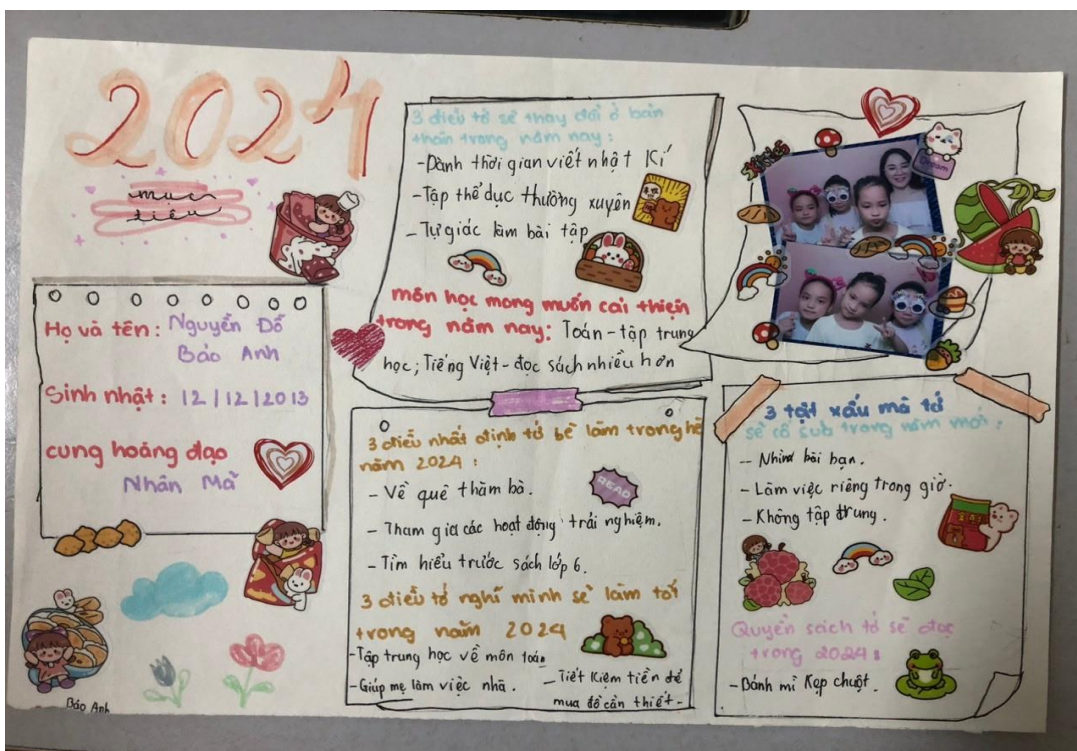 2024
mục
tiêu
Họ và tên: Nguyễn Đỗ
Bảo Anh
Sinh nhật: 12/12/2013
cung hoàng đạo
Nhân Mã
Bảo Anh
3 điều tớ sẽ thay đổi ở bản
thân trong năm nay:
-Dành thời gian viết nhật kí
-Tập thể dục thường xuyên
-Tự giác làm bài tập
môn học mong muốn cải thiện
trong năm nay: Toán-tập trung
học; Tiếng Việt-đọc sách nhiều hơn
3 điều nhất định tớ sẽ làm trong hè
năm 2024:
- Về quê thăm bà.
- Tham gia các hoạt động trải nghiệm.
- Tìm hiểu trước sách lớp 6.
READ
3 điều tớ nghĩ mình sẽ làm tốt
trong năm 2024
-Tập trung học về môn toán
-Giúp mẹ làm việc nhà.
-Tiết kiệm tiền để
mua đồ cần thiết-
3 tật xấu mà tớ
sẽ cố sửa trong năm mới:
- Nhìn bài bạn.
- Làm việc riêng trong giờ.
- Không tập trung.
Quyển sách tớ sẽ đọc
trong 2024:
-Bánh mì kẹp chuột.